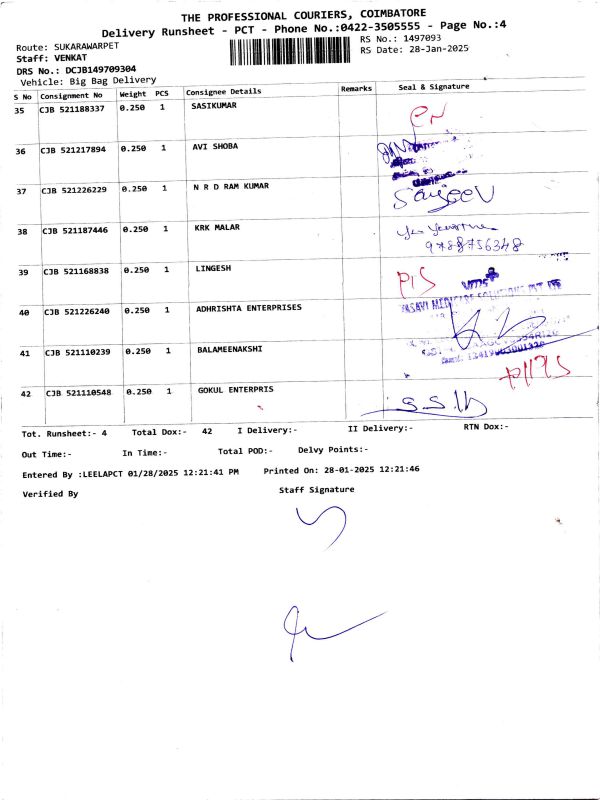 THE PROFESSIONAL COURIERS, COIMBATORE
Delivery Runsheet - PCT - Phone No.:0422-3505555 - Page No.:4
Route: SUKARAWARPET
RS No.: 1497093
Staff: VENKAT
RS Date: 28-Jan-2025
DRS No.: DCJB149709304
Vehicle: Big Bag Delivery
S No Consignment No Weight PCS Consignee Details Remarks Seal & Signature
35 CJB 521188337 0.250 1 SASIKUMAR
36 CJB 521217894 0.250 1 AVI SHOBA
37 CJB 521226229 0.250 1 N R D RAM KUMAR Sanjeev
38 CJB 521187446 0.250 1 KRK MALAR
9788756348
39 CJB 521168838 0.250 1 LINGESH
40 CJB 521226240 0.250 1 ADHRISHTA ENTERPRISES
41 CJB 521110239 0.250 1 BALAMEENAKSHI
42 CJB 521110548 0.250 1 GOKUL ENTERPRIS
Tot. Runsheet:- 4 Total Dox:- 42 I Delivery:- II Delivery:- RTN Dox:-
Out Time:- In Time:- Total POD:- Delvy Points:-
Entered By :LEELAPCT 01/28/2025 12:21:41 PM Printed On: 28-01-2025 12:21:46
Verified By Staff Signature